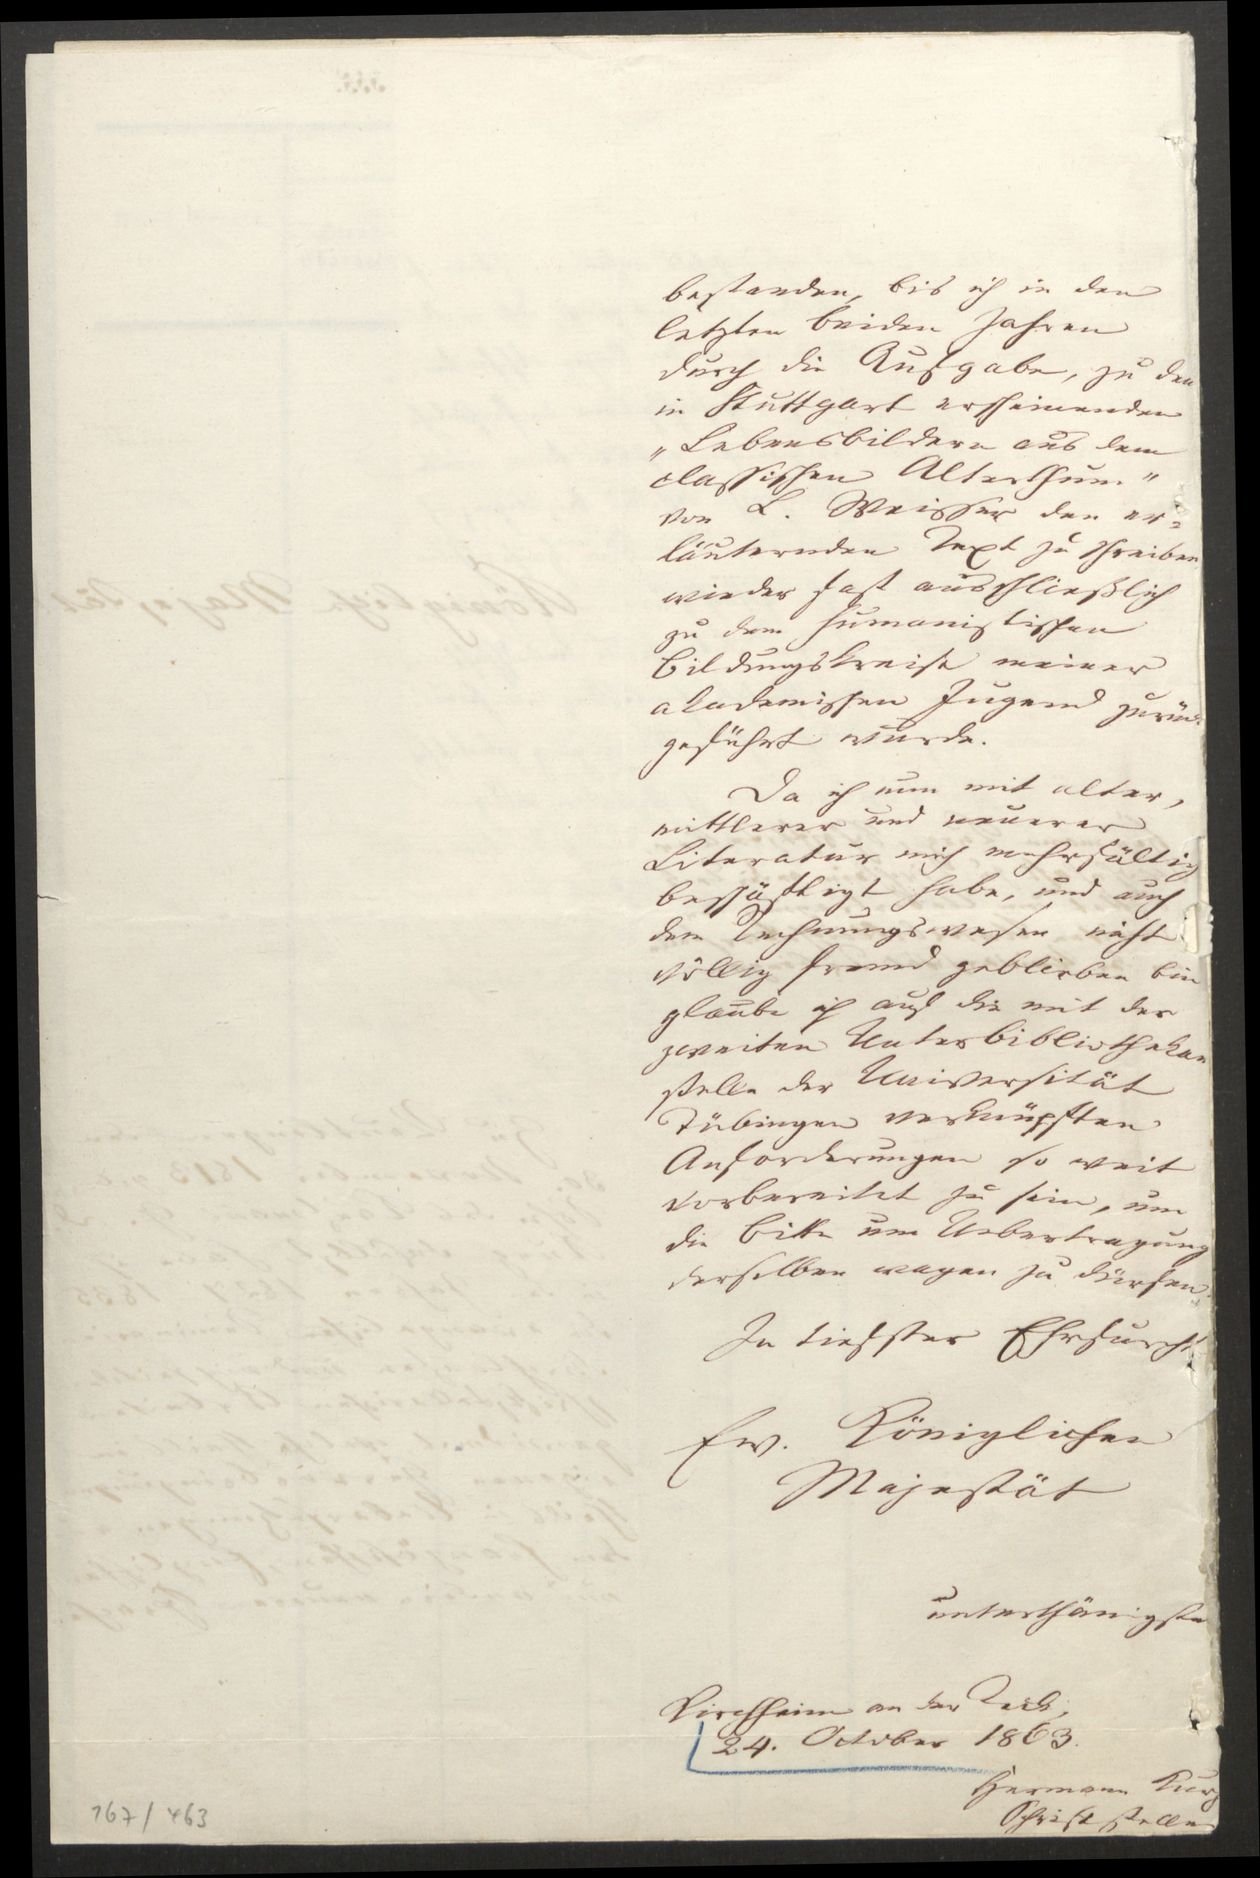 bestanden, bis ich in den
letzten beiden Jahren
durch die Aufgabe, zu den
in Stuttgart erscheinenden
„Lebensbildern aus dem
classischen Alterthum"
von L. Weisser den er=
läuternden Text zu schreiben
wieder fast ausschließlich
zu dem humanistischen
Bildungskreise meiner
akademischen Jugend zurück
geführt wurde.
Da ich nun mit alter,
mittlerer und neuerer
Literatur mich mehrfältig
beschäftigt habe, und auch
dem Rechnungswesen nicht
völlig fremd geblieben bin
glaube ich auf die mit der
zweiten Unterbibliothekar
stelle der Universität
Tübingen verknüpften
Anforderungen so weit
vorbereitet zu sein, um
die Bitte um Uebertragung
derselben wagen zu dürfen.
In tiefster Ehrfurcht
Ew. Königlichen
Majestät
unterthänigster
Kirchheim an der Teck,
24. October 1863.
Hermann Kurz
Schriftsteller
167/463